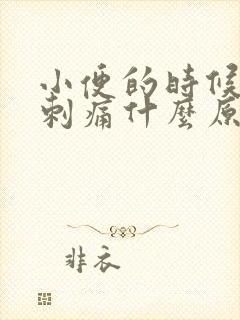 小便的時候
刺痛什麼原
非衣